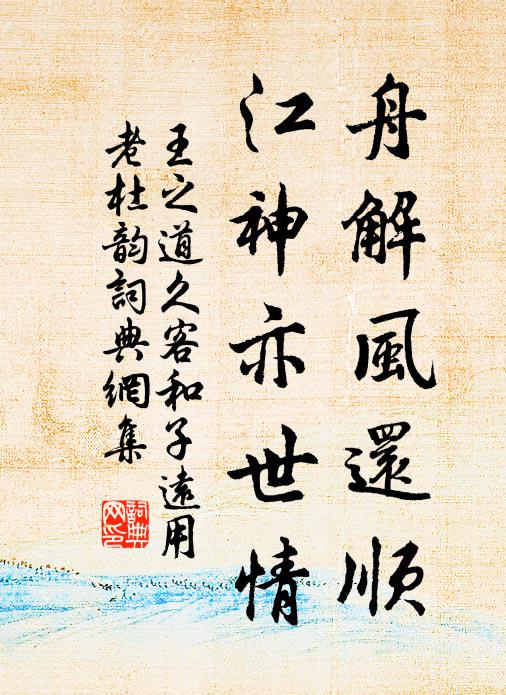 舟解風還順
江神亦世情
王之道久客和子遠用
老杜韵詞典網集
詞典
网印